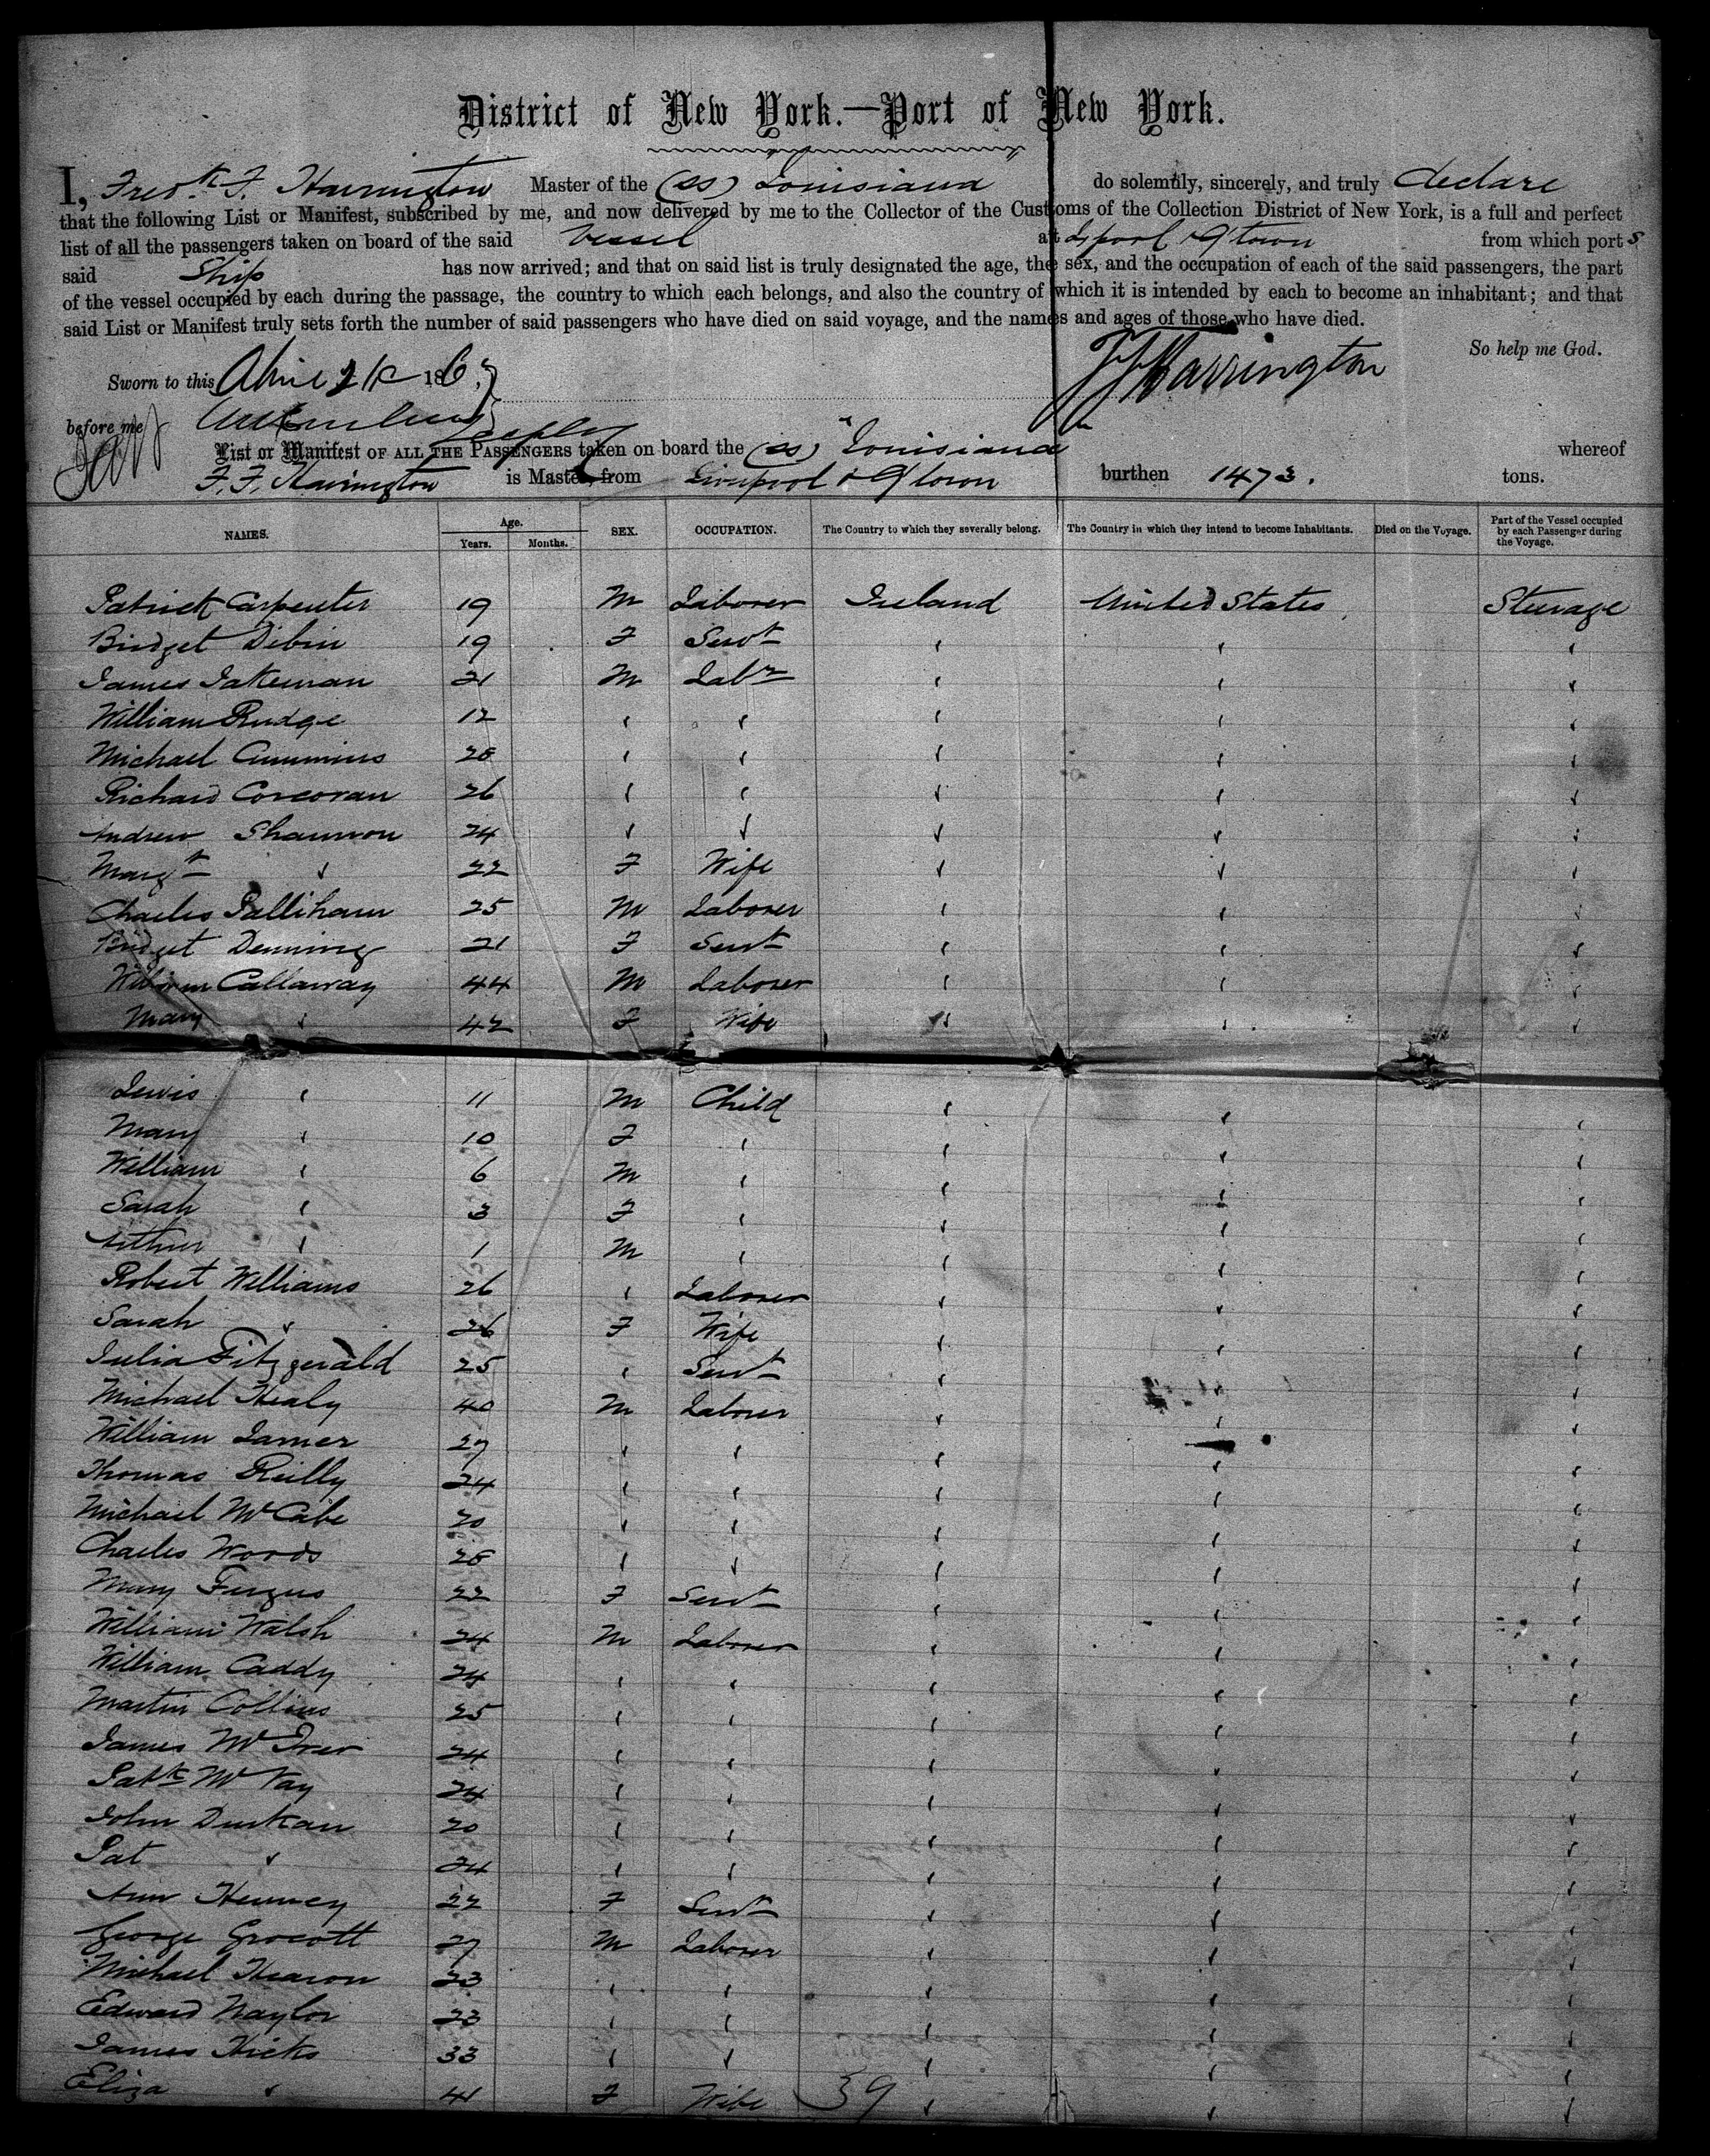 District of New York.—Port of New York.
I, Fredk. F. Harrington Master of the (ss) "Louisiana" do solemnly, sincerely, and truly declare
that the following List or Manifest, subscribed by me, and now delivered by me to the Collector of the Customs of the Collection District of New York, is a full and perfect
list of all the passengers taken on board of the said Vessel at L'pool & Q'town from which ports
said Ship has now arrived; and that on said list is truly designated the age, the sex, and the occupation of each of the said passengers, the part
of the vessel occupied by each during the passage, the country to which each belongs, and also the country of which it is intended by each to become an inhabitant; and that
said List or Manifest truly sets forth the number of said passengers who have died on said voyage, and the names and ages of those who have died.
So help me God.
Sworn to this 186
FF Harrington
before me
List or Manifest OF ALL THE PASSENGERS taken on board the (ss) "Louisiana whereof
F. F. Harrington is Master, from Liverpool & Q'town burthen 1473. tons.
NAMES. Age. Years. Months. SEX. OCCUPATION. The Country to which they severally belong. The Country in which they intend to become Inhabitants. Died on the Voyage. Part of the Vessel occupied by each Passenger during the Voyage.
Patrick Carpenter 19 M Laborer Ireland United States Steerage
Bridget Dibin 19 F Servt " " "
James Jakeman 21 M Labr " " "
William Rudge 12 " " " " "
Michael Cummins 28 " " " " "
Richard Corcoran 26 " " " " "
Andrew Shannon 24 " " " " "
Margt " 22 F Wife " " "
Charles Palliham 25 M Laborer " " "
Bridget Denning 21 F Servt " " "
William Callaway 44 M Laborer " " "
Mary " 42 F Wife " " "
Lewis " 11 M Child " " "
Mary " 10 F " " " "
William " 6 M " " " "
Sarah " 3 F " " " "
Arthur " 1 M " " " "
Robert Williams 26 " Laborer " " "
Sarah " 26 F Wife " " "
Julia Fitzgerald 25 " Servt " " "
Michael Healy 40 M Laborer " " "
William Jamer 27 " " " " "
Thomas Reilly 24 " " " " "
Michael McCabe 20 " " " " "
Charles Woods 28 " " " " "
Mary Fergus 22 F Servt " " "
William Walsh 24 M Laborer " " "
William Caddy 24 " " " " "
Martin Collins 25 " " " " "
James McIver 24 " " " " "
Patk McVay 24 " " " " "
John Durkan 20 " " " " "
Pat " 24 " " " " "
Ann Henney 22 F Servt " " "
George Grocott 27 M Laborer " " "
Michael Hearon 23 " " " " "
Edward Naylor 23 " " " " "
James Hicks 33 " " " " "
Eliza " 41 F Wife 39 " " "